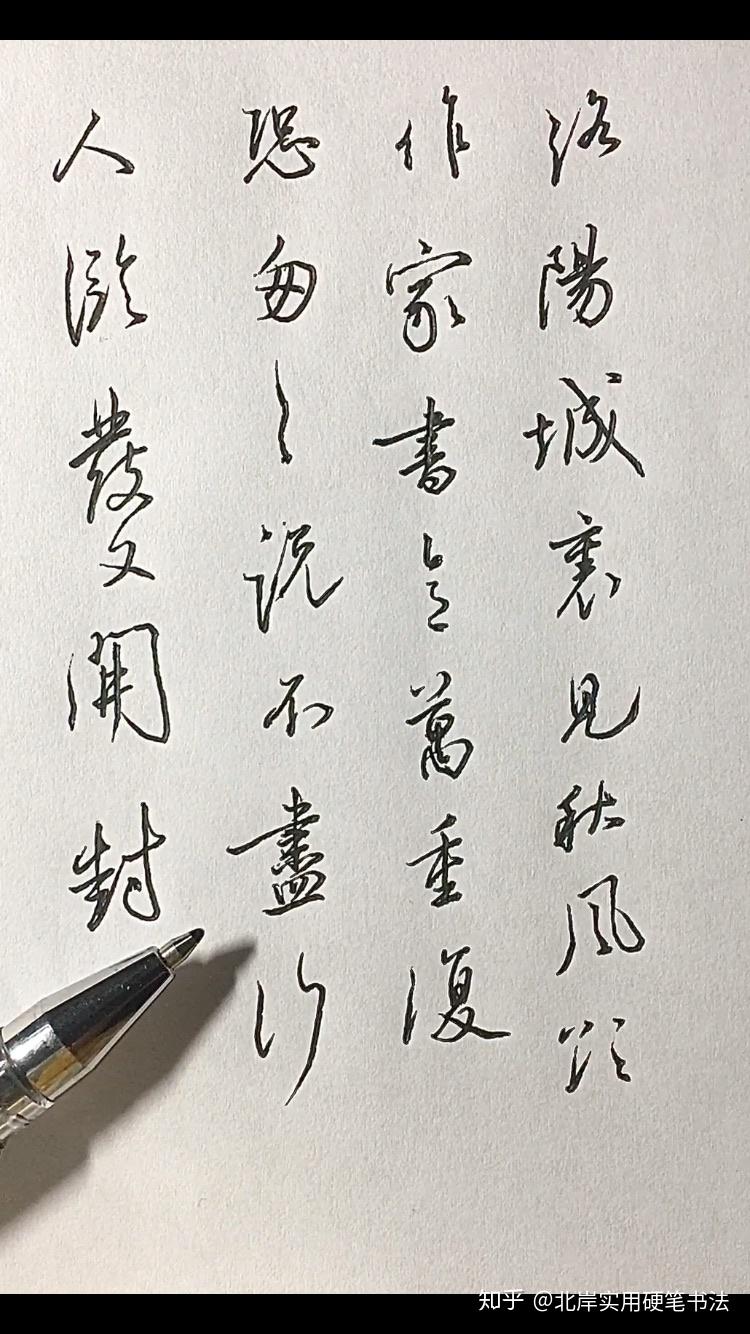 洛陽城裏見秋風欲
作家書意萬重復
恐匆〻説不盡行
人臨發又開封
知乎 @北岸实用硬笔书法